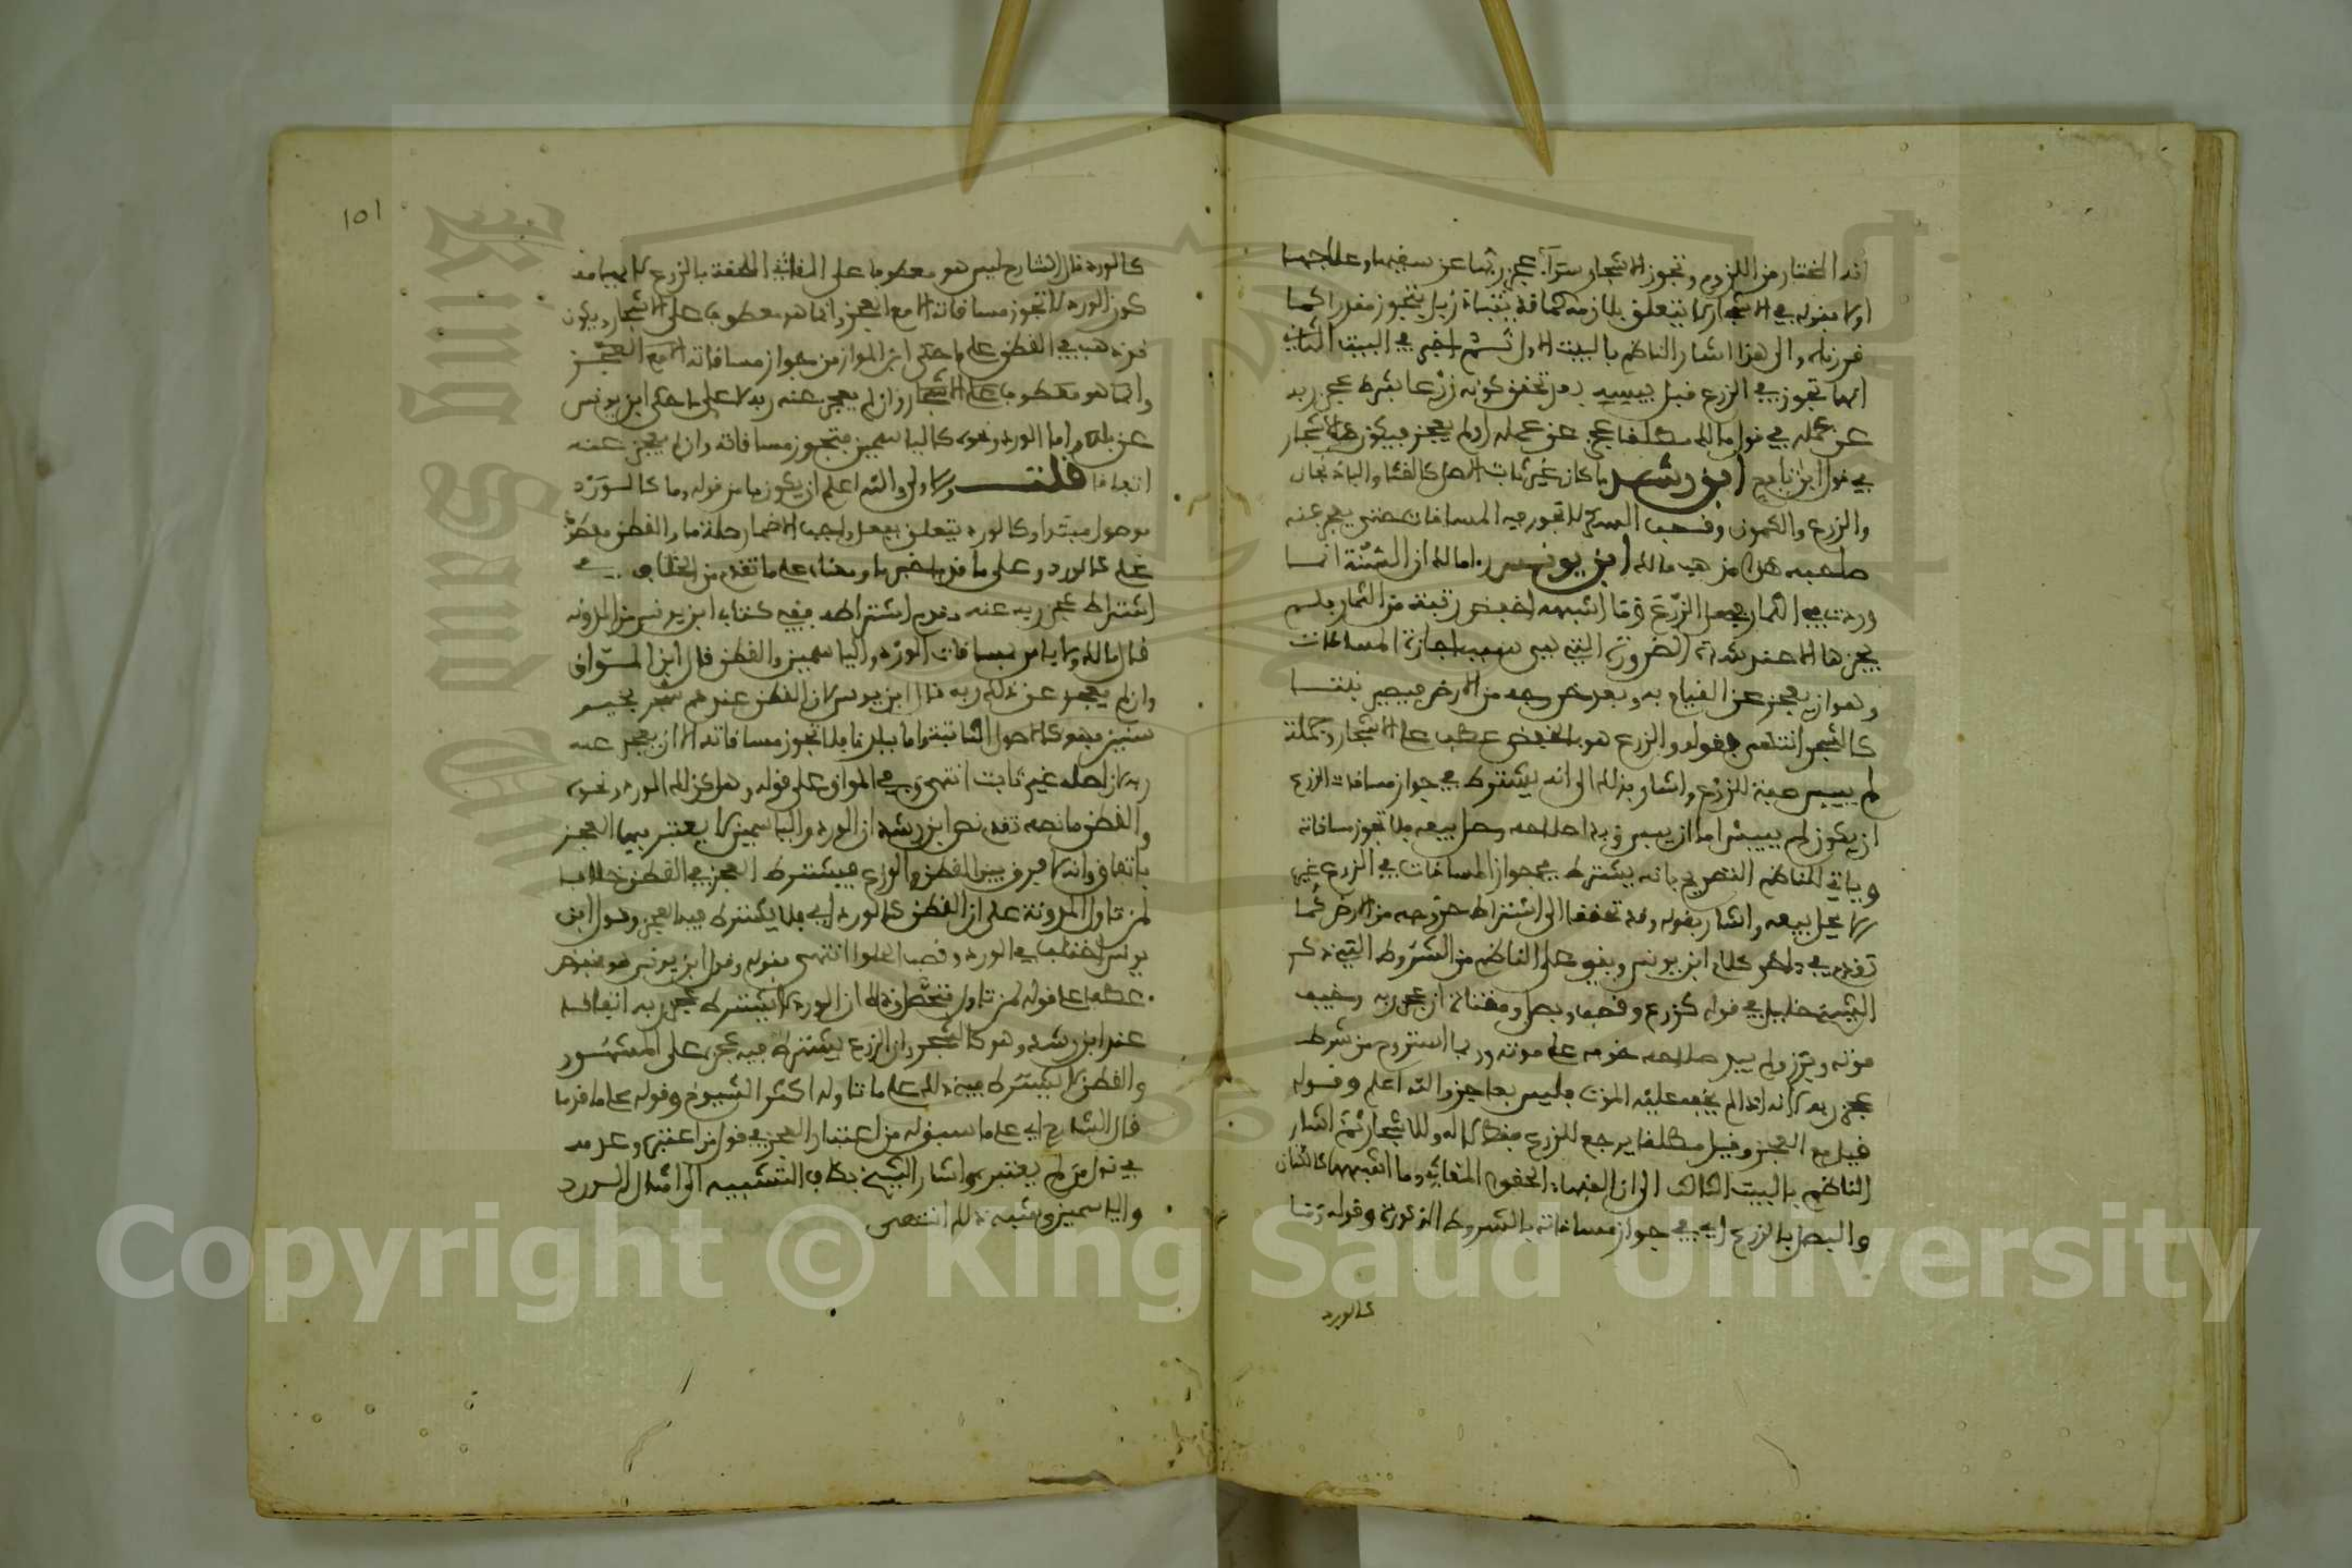 انه المختار من اللزوم وتجوز الاشجار سواء عجز ربها عن سقيها وعلاجها
اولا فقوله في الاشجار لا يتعلق بلازمة
فررناه والى هذا اشار الناظم بالبيت الاول ثم اخبر في البيت الثاني
انها تجوز في الزرع قبل يبسه بعد تحقق كونه زرعا بشرط عجز ربه
عن عمله في قول مالك مطلقا عجز عن عمله او لم يعجز فيكون كالاشجار
في قول ابن نافع ابن رشد ما كان غير ثابت الاصل كالقثا والباذنجان
والزرع والكمون وقصب السكر لا تجوز فيه المساقات حتى يعجز عنه
صاحبه هذا مذهب مالك ابن يونس مالك ان السنة انما
وردت في الثمار فجعل الزرع وما اشبهه اخفض رتبة من الثمار فلم
يجزها الا عند شدة الضرورة التي هي سبب اجازة المساقات
وهو ان يعجز عن القيام به وبعد خروجه من الارض فيصير نابتا
كالشجر انتهى فقوله والزرع هو بالخفض عطف على الاشجار وجملة
لم ييبس صفة للزرع واشار بذلك الى انه يشترط في جواز مساقات الزرع
ان يكون لم ييبس اما ان يبس وبدا صلاحه وحل بيعه فلا تجوز مساقاته
وياتي للناظم التصريح بانه يشترط في جواز المساقات في الزرع غير
ما يحل بيعه واشار بقوله وقد تحققا الى اشتراط خروجه من الارض كما
تقدم في كلام ابن يونس وبقي على الناظم من الشروط التي ذكر
الشيخ خليل في قوله كزرع وقصب وبصل ومقثاة ان عجز ربه وخيف
موته وبرز ولم يبد صلاحه خوفه على موته وربما استروح من شرط
عجز ربه لانه اذا لم يخف عليه الموت فليس بعاجز والله اعلم وقوله
قيل مع العجز وقيل مطلقا يرجع للزرع فقط لا له وللاشجار ثم اشار
الناظم بالبيت الثالث الى ان الفقهاء الحقوا المقاثي وما اشبهها كالكتان
والبصل بالزرع اي في جواز مساقاته بالشروط المذكورة وقوله وما
كالورد
١٥١
كالورد قال الشارح ليس هو معطوفا على المقاثي الملحقة بالزرع لايهامه
كون الورد لا تجوز مساقاته الا مع العجز وانما هو معطوف على الاشجار ويكون
قد ذهب في القطن على ما حكى ابن المواز من جواز مساقاته الا مع العجز
وانما هو معطوف على الاشجار وان لم يعجز عنه ربه لا على ما حكى ابن يونس
عن مالك واما الورد ونحوه كالياسمين فتجوز مساقاته وان لم يعجز عنه
اتفاقا قلت والاولى والله اعلم ان يكون ما من قوله وما كالورد
موصول مبتدا وكالورد يتعلق بفعل واجب الاضمار صلة ما والقطن معطوف
على كالورد وعلى ما قد خبر ما ومعناه على ما تقدم من الخلاف في
اشتراط عجز ربه عنه وعدم اشتراطه ففي كتاب ابن يونس من المدونة
قال مالك ولا باس بمساقات الورد والياسمين والقطن قال ابن المواز
وان لم يعجز عن ذلك ربه قال ابن يونس لان القطن عندهم شجر يقيم
سنين فهو كالاصول الثابتة واما ببلدنا فلا تجوز مساقاته الا ان يعجز عنه
ربه لان اصله غير ثابت انتهى وفي المواق على قوله وهل كذلك الورد ونحوه
والقطن ما نصه تقدم نص ابن رشد ان الورد والياسمين لا يعتبر فيهما العجز
باتفاق وانه لا فرق بين القطن والزرع فيشترط العجز في القطن خلافا
لمن تاول المدونة على ان القطن كالورد اي فلا يشترط فيه العجز وقول ابن
يونس اختلف في الورد وقصب الحلوا انتهى فقوله وقول ابن يونس هو بخفض
عطفا على قوله لمن تاول فتحصل من ذلك ان الورد لا يشترط عجز ربه اتفاقا
عند ابن رشد وهو كالشجر وان الزرع يشترط فيه عجزه على المشهور
والقطن لا يشترط فيه ذلك على ما تاوله اكثر الشيوخ وقوله على ما قدما
قال الشارح اي على ما سبق له من اعتبار العجز في قول من اعتبره وعدمه
في قول من لم يعتبره واشار الشيخ بكاف التشبيه الى امثال الورد
والياسمين وشبه ذلك انتهى